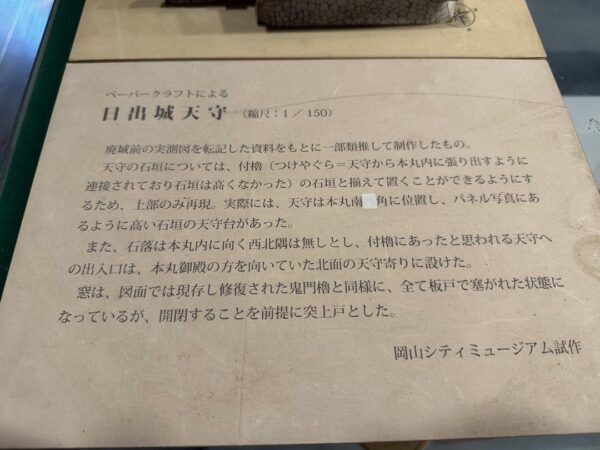 ペーパークラフトによる
日出城天守（縮尺：1／150）
廃城前の実測図を転記した資料をもとに一部類推して制作したもの。
天守の石垣については、付櫓（つけやぐら＝天守から本丸内に張り出すように
連接されており石垣は高くなかった）の石垣と揃えて置くことができるようにす
るため、上部のみ再現。実際には、天守は本丸南角に位置し、パネル写真にあ
るように高い石垣の天守台があった。
また、石落は本丸内に向く西北隅は無しとし、付櫓にあったと思われる天守へ
の出入口は、本丸御殿の方を向いていた北面の天守寄りに設けた。
窓は、図面では現存し修復された鬼門櫓と同様に、全て板戸で塞がれた状態に
なっているが、開閉することを前提に突上戸とした。
岡山シティミュージアム試作